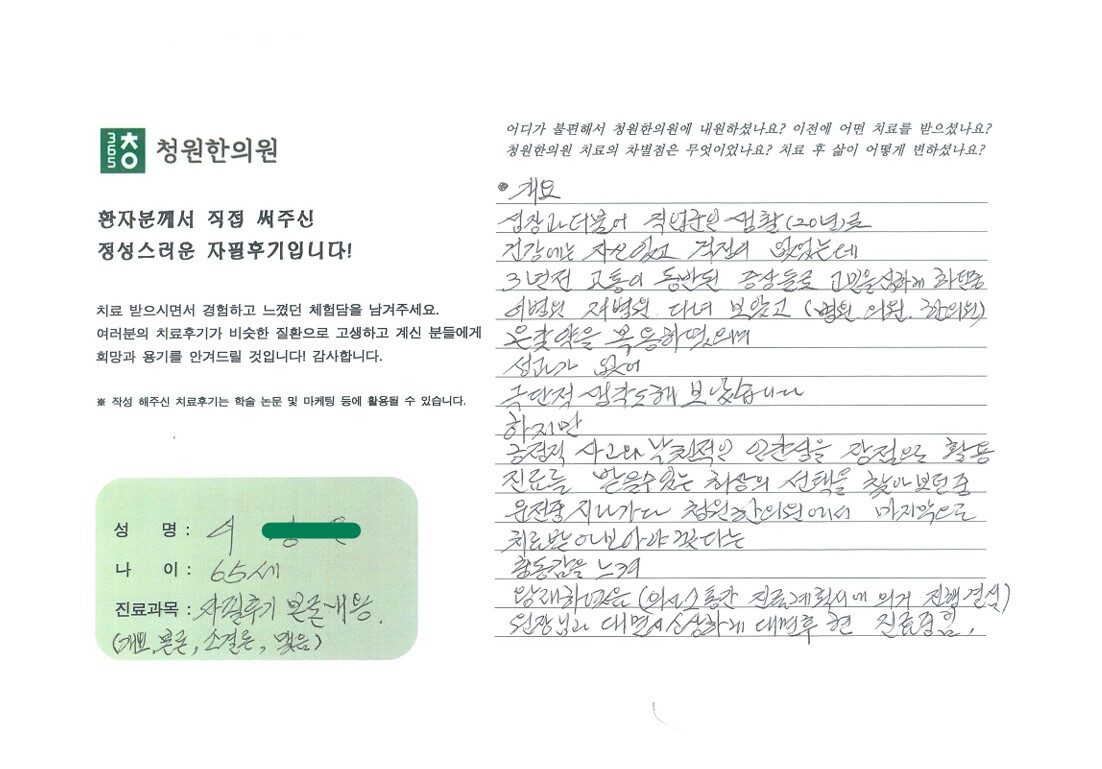 365 청
청원한의원
환자분께서 직접 써주신
정성스러운 자필후기입니다!
치료 받으시면서 경험하고 느꼈던 체험담을 남겨주세요.
여러분의 치료후기가 비슷한 질환으로 고생하고 계신 분들에게
희망과 용기를 안겨드릴 것입니다! 감사합니다.
※ 작성 해주신 치료후기는 학술 논문 및 마케팅 등에 활용될 수 있습니다.
성 명 :
나 이 : 65세
진료과목 : 자필후기 본론내용.
(개요, 본론, 소결론, 맺음)
어디가 불편해서 청원한의원에 내원하셨나요? 이전에 어떤 치료를 받으셨나요?
청원한의원 치료의 차별점은 무엇이었나요? 치료 후 삶이 어떻게 변하셨나요?
개요
성장과더불어 직업군인 생활(20년)로
건강에는 자신있고 걱정이 없었는데
3년전 고통이 동반된 증상들로 고민을심하게 하던중
이병원 저병원 다녀 보았고 (병원. 의원. 한의원)
온갖약을 복용하였으며
성과가 없어
극단적 생각도해 보았습니다
하지만
긍정적 사고와 낙천적인 을 장점으로 활용
진료를 받을수있는 최상의 선택을 찾아보던중
운전중 지나가다 청원한의원에서 마지막으로
치료받아보아야 겠다는
충동감을 느껴
(의사소통간 진료계획서에 의거 진행결심)
원장님과 대면시 상세하게 대면후 현 진료중임.